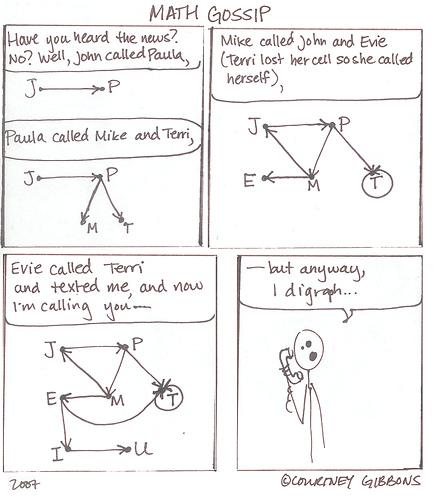 MATH GOSSIP
Have you heard the news?
No? Well, John called Paula,
J P
Paula called Mike and Terri,
J P
M T
Mike called John and Evie
(Terri lost her cell so she called
herself),
J P
E M T
Evie called Terri
and texted me, and now
I'm calling you—
J P
E M T
I U
—but anyway,
I digraph...
2007 ©COURTNEY GIBBONS